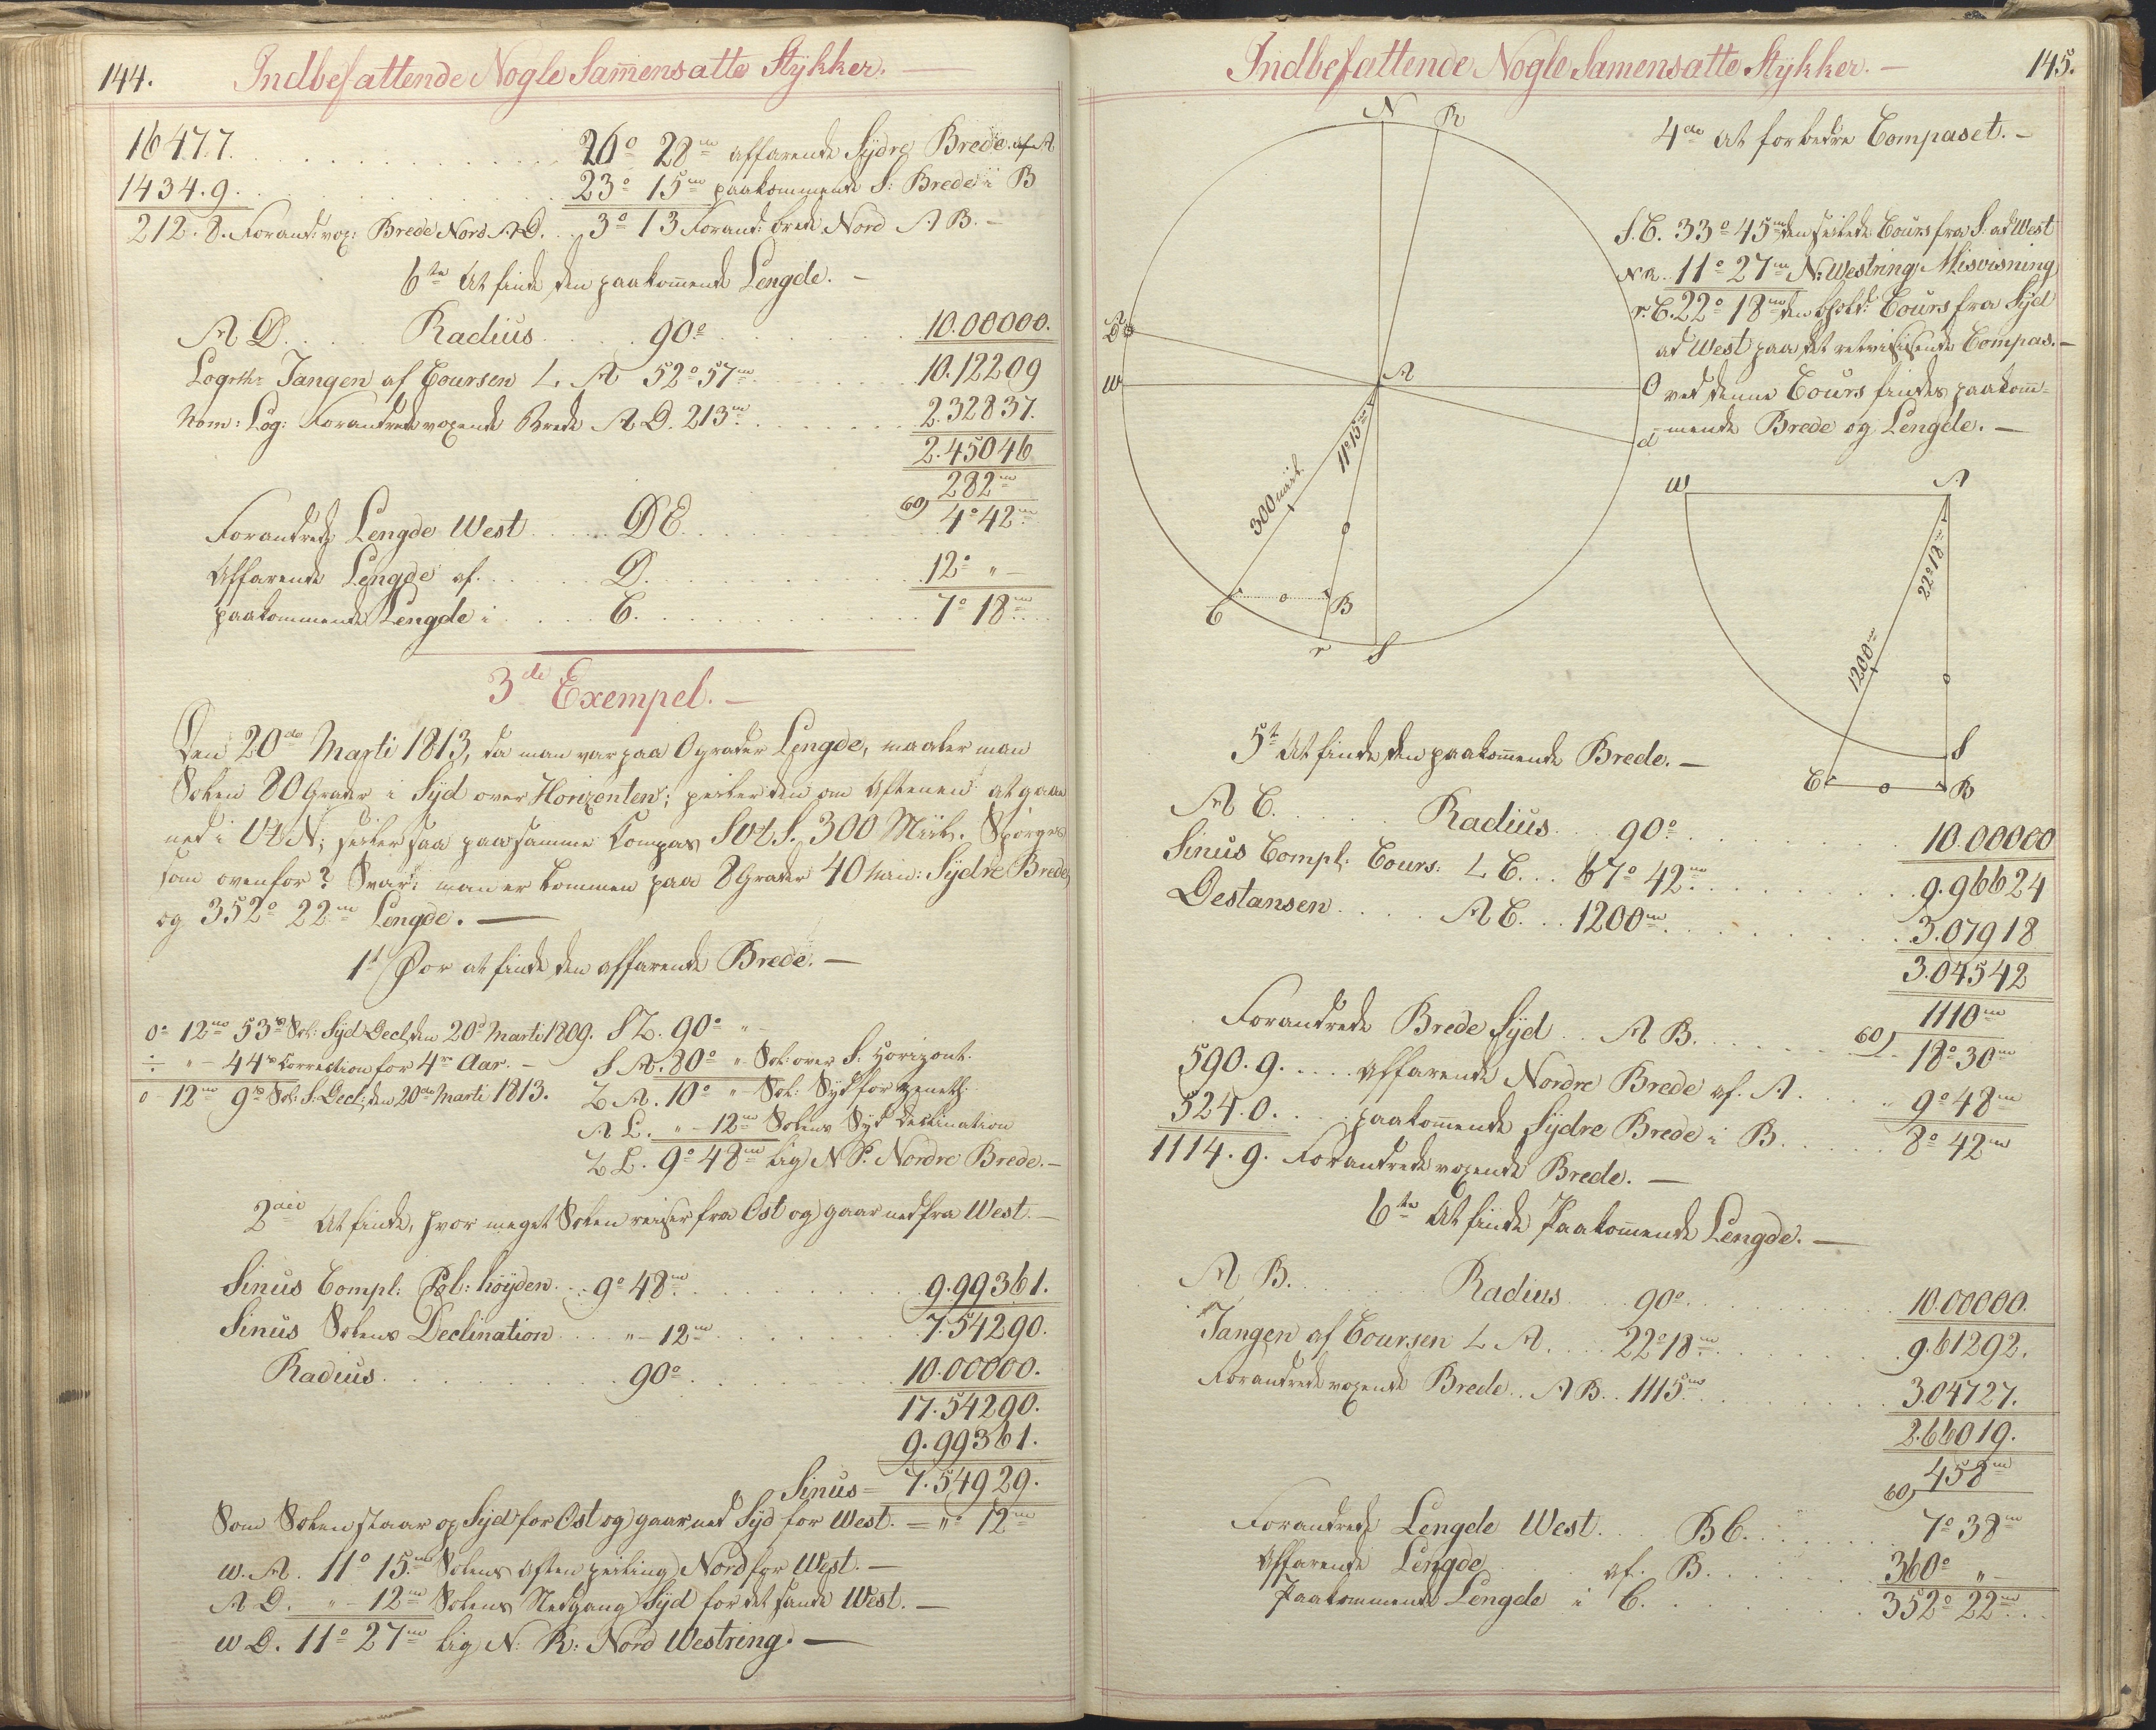 144. Indbefattende Nogle Sam̅ensatte Stÿkker. —
1647.7. . . . 26° 28m affarende Sÿdre Brede af A
1434.9. . . . 23° 15m paakommende S: Brede i B
212.8. Forand: vox: Brede Nord A D. . . 3° 13 Forand: brede Nord A B. —
6te At finde den paakom̅ende Lengde. —
A D. . . . Radius . . . 90° . . . 10.00000.
Logrth: Tangen af Coursen L. A 52° 57m . . . 10.12209
Nom: Log: Forandrede voxende Brede A D. 213m . . . 2.32837.
2.45046
282m
60)
Forandrede Lengde West . . . D E . . . 4° 42m
Affarende Lengde af . . . D. . . . 12° „ —
paakommende Lengde i . . . C. . . . 7° 18m
3de Exempel. —
Den 20de Marti 1813, da man var paa 0 grader Lengde, maaler man
Solen 80 Grader i Sÿd over Horizonten; peiler den om Aftenen at gaae
ned i VtN; seiler saa paa samme Compas SvtS. 300 Miil. Spörges
som ovenfor? Svar: man er kommen paa 8 Grader 40 min: Sÿdre Brede,
og 352° 22m Lengde. —
1t For at finde den affarende Brede. —
0° 12m 53s Sol: Sÿd Decl, den 20de Marti 1809. S Z. 90° „ —
÷ „ — 44s Correction for 4re Aar. — S A. 80° „ Sol: over S: Horizont.
0 — 12m 9s Sol: S: Decl, den 20de Marti 1813. Z A. 10° „ Sol: Sÿd for Zeneth
A L. „ — 12m Solens Sÿd Declination
Z L. 9° 48m lig N P. Nordre Brede. —
2den At finde, hvor meget Solen reiser fra Ost og gaar ned fra West. —
Sinus Compl: Pol: höÿden . . . 9° 48m . . . 9.99361.
Sinus Solens Declination . . . „ — 12m . . . 7.54290.
Radius . . . 90° . . . 10.00000.
17.54290.
9.99361.
Sinus = 7.54929.
Som Solen staar op Sÿd for Ost og gaar ned Sÿd for West. — = „° 12m
w. A. 11° 15m Solens Aften peiling Nord for West. —
A D. „ — 12m Solens Nedgang Sÿd for det sande West. —
w D. 11° 27m lig N: R: Nord Westring. —
Indbefattende Nogle Samensatte Stÿkker. — 145.
4de At forbedre Compaset. —
S. C. 33° 45m den seilede Cours fra S: ad West
N R. 11° 27m N: Westring, Misvisning
r. C. 22° 18m den Cours fra Sÿd
ad West paa det retvisisende Compas. —
ved denne Cours findes paakom̅-
mende Brede og Lengde. —
N
R
D
w
A
O
d
300 miil.
11° 15m
C
B
r
S
w
A
22° 18m
1200m
S
C
B
5t At finde den paakom̅ende Brede. —
A C. . . . Radius . . . 90° . . . 10.00000
Sinus Compl: Cours: L C. . . 67° 42m . . . 9.96624
Destansen . . . A C. . . 1200m . . . 3.07918
3.04542
1110m
60)
Forandrede Brede Sÿd . . A B. . . . 18° 30m
590.9. . . . Affarende Nordre Brede af. A . . . 9° 48m
524.0. . . . paakom̅ende Sÿdre Brede i B. . . . 8° 42m
1114.9. Forandrede voxende Brede. —
6te At finde Paakom̅ende Lengde. —
A B. . . . Radius . . . 90° . . . 10.00000.
Tangen af Coursen L A. . . . 22° 18m . . . 9.61292.
Forandrede voxende Brede . . A B. . 1115m . . . 3.04727.
2.66019.
458m
60)
Forandrede Lengde West. . . B C. . . . 7° 38m
Affarende Lengde . . . af. B. . . . 360° „ —
Paakommende Lengde i C. . . . 352° 22m . . .